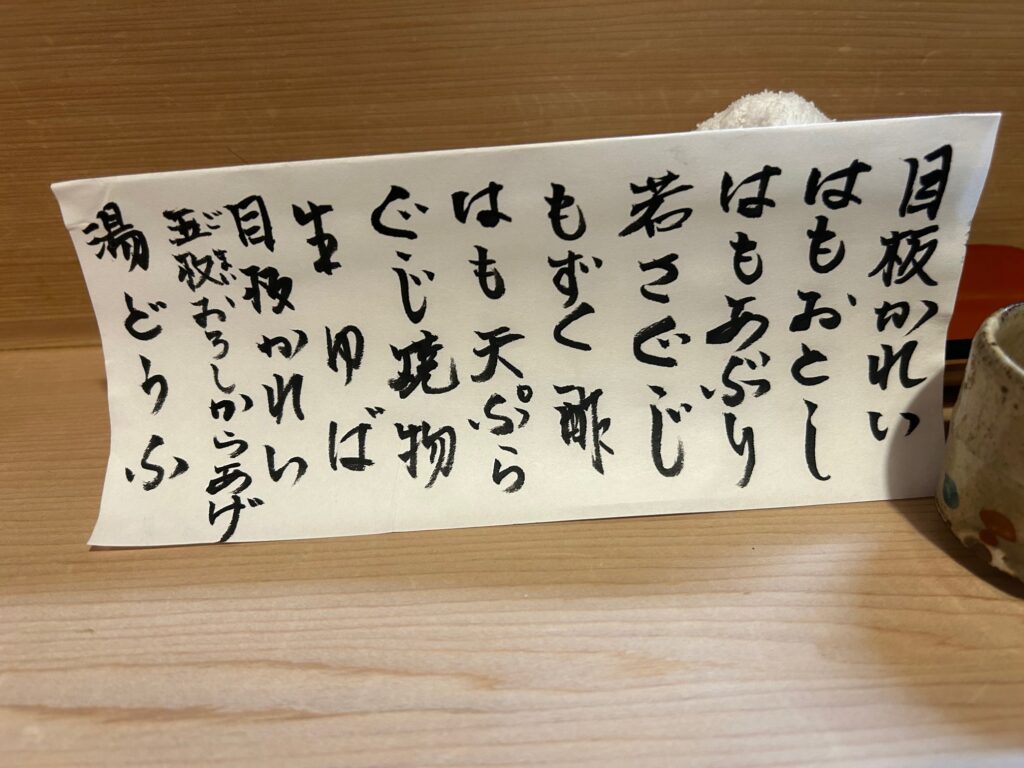 目板かれい
はもおとし
はもあぶり
若さぐじ
もずく酢
はも天ぷら
ぐじ焼物
生ゆば
目板かれい
五枚おろしからあげ
湯どうふ